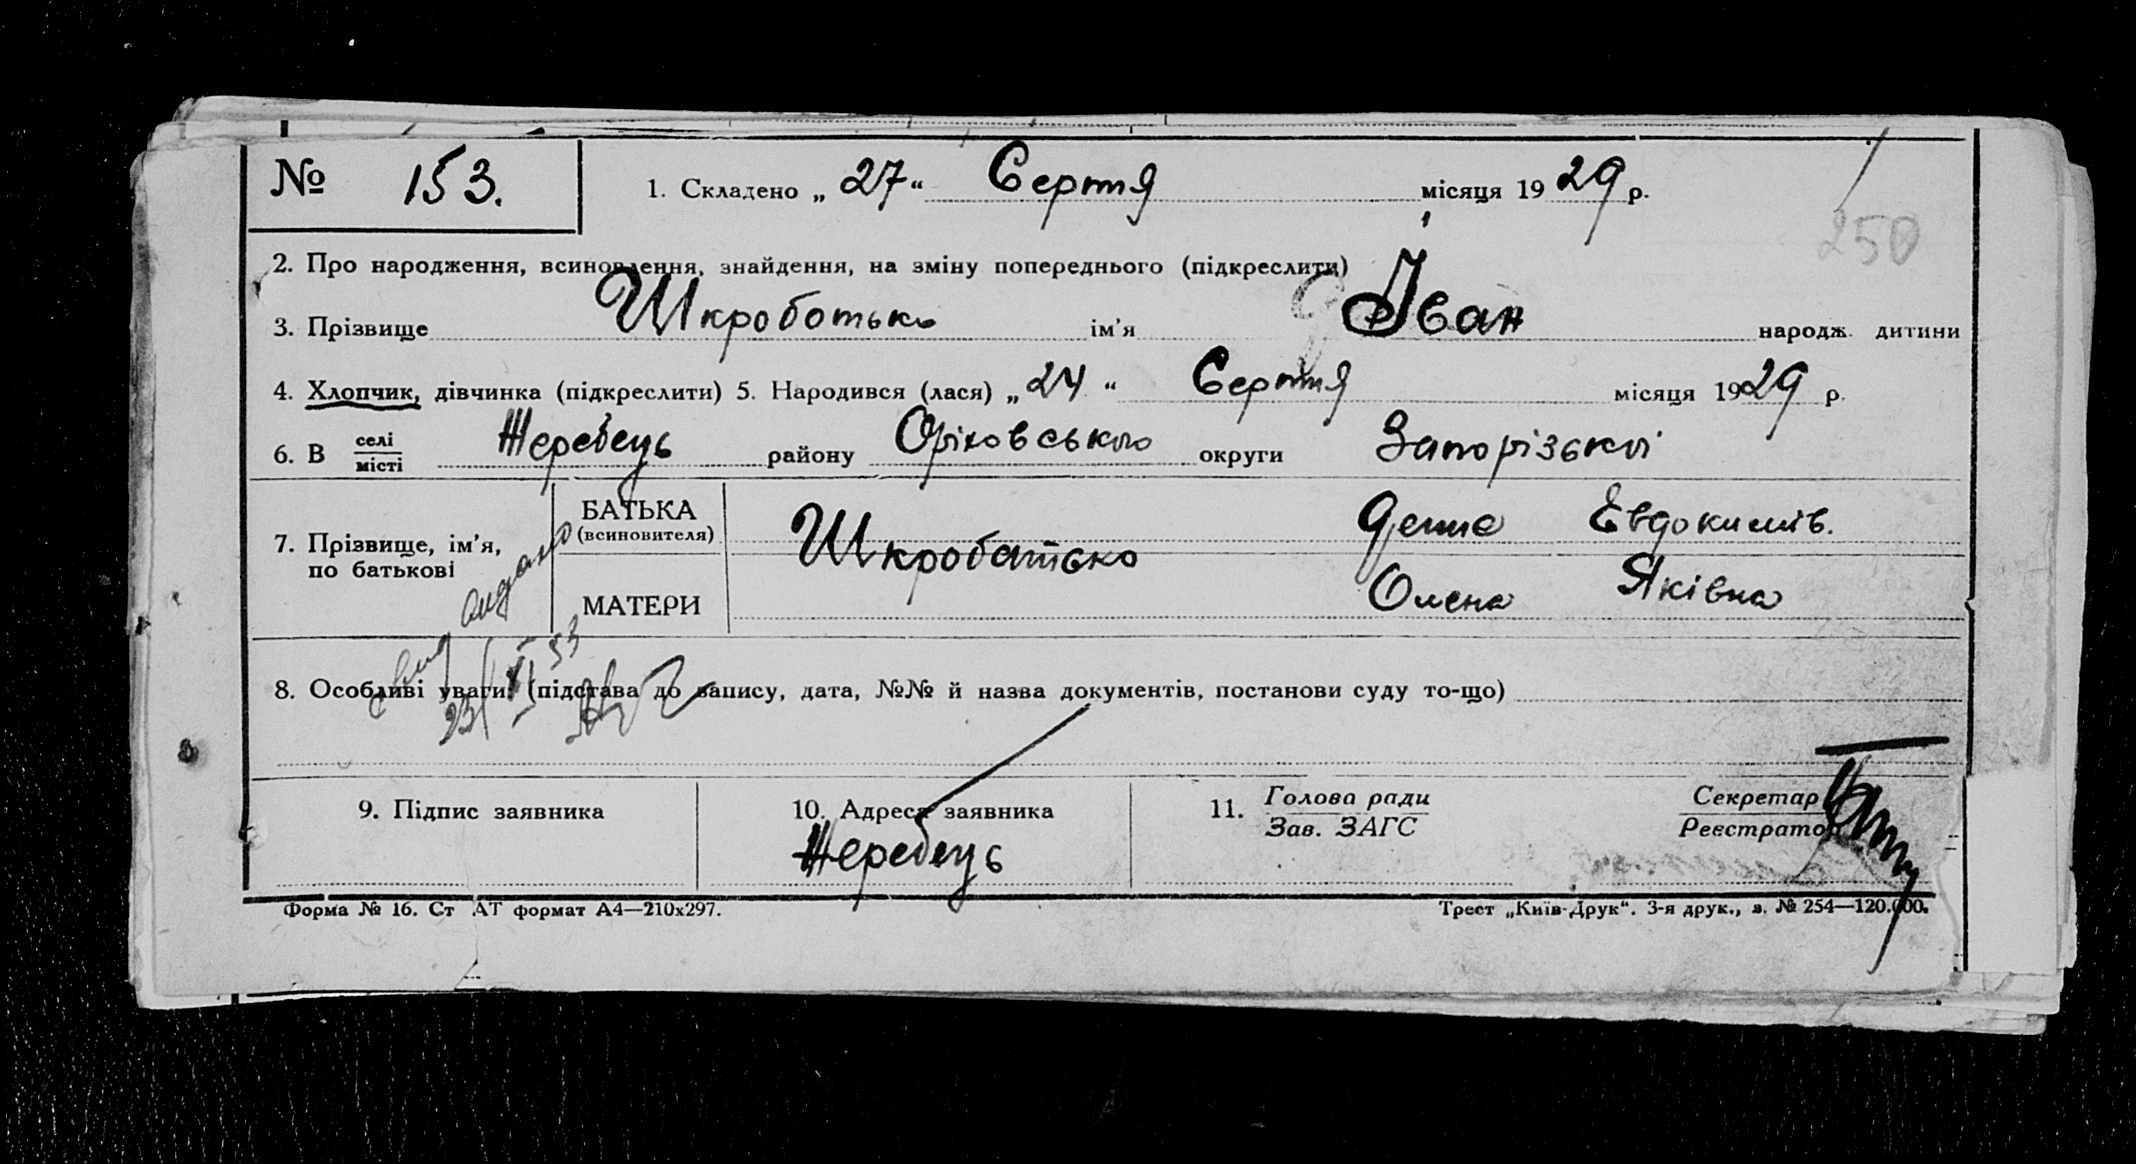 № 153.
1. Складено „ 27 “ Серпня місяця 19 29 р.
250
2. Про народження, всиновлення, знайдення, на зміну попереднього (підкреслити)
3. Прізвище Шкроботько ім’я Іван народж. дитини
4. Хлопчик, дівчинка (підкреслити) 5. Народився (лася) „ 24 “ Серпня місяця 19 29 р.
6. В селі місті Жеребець району Оріховського округи Запорізької
7. Прізвище, ім’я, по батькові
БАТЬКА (всиновителя) Шкробатько Евдокимів.
МАТЕРИ Олена Яківна
видано
23/XI 53
8. Особливі уваги: (підстава до запису, дата, №№ й назва документів, постанови суду то-що)
9. Підпис заявника
10. Адреса заявника
Жеребець
11. Голова ради
Зав. ЗАГС
Секретар
Реєстратор
Форма № 16. Ст АТ формат А4—210х297.
Трест „Київ-Друк“. 3-я друк., з. № 254—120.000.